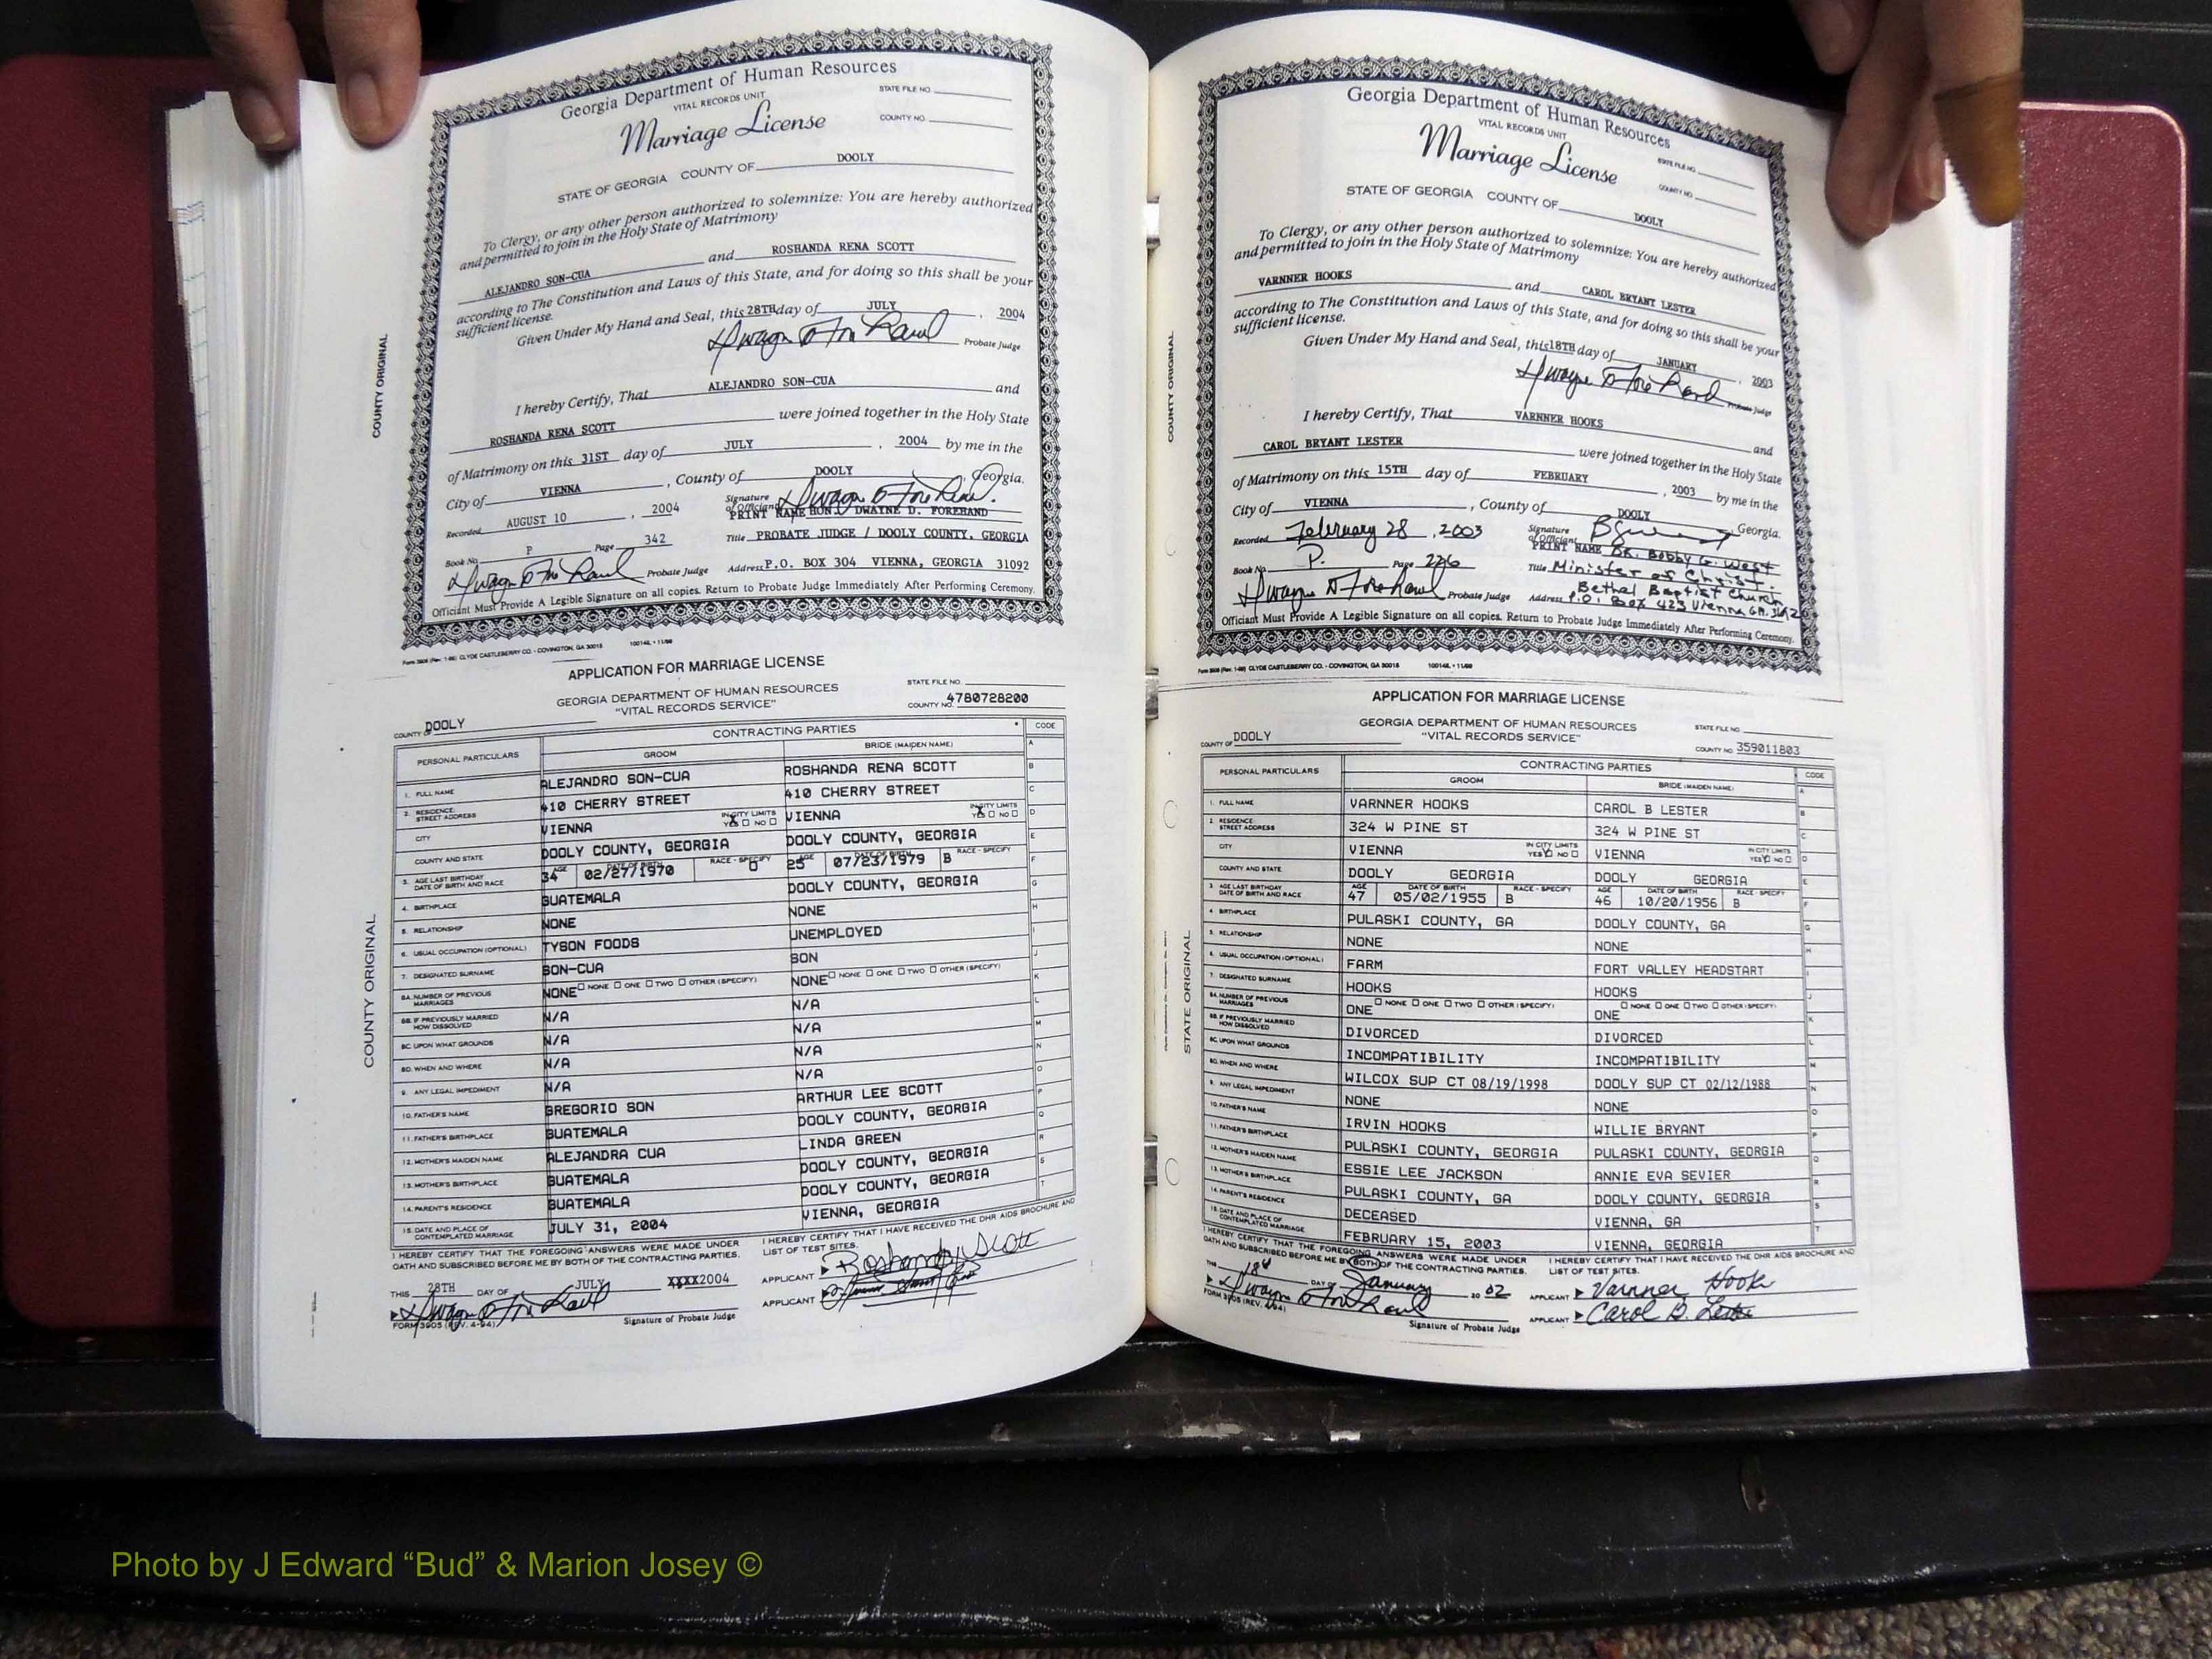 Georgia Department of Human Resources
VITAL RECORDS UNIT
STATE FILE NO.
Marriage License
COUNTY NO.
STATE OF GEORGIA COUNTY OF DOOLY
To Clergy, or any other person authorized to solemnize: You are hereby authorized
and permitted to join in the Holy State of Matrimony
ALEJANDRO SON-CUA and ROSHANDA RENA SCOTT
according to The Constitution and Laws of this State, and for doing so this shall be your
sufficient license.
Given Under My Hand and Seal, this 28TH day of JULY, 2004
Probate Judge
I hereby Certify, That ALEJANDRO SON-CUA and
ROSHANDA RENA SCOTT were joined together in the Holy State
of Matrimony on this 31ST day of JULY, 2004 by me in the
City of VIENNA, County of DOOLY, Georgia.
Signature of Officiant
PRINT NAME HON. DWAYNE D. FOREHAND
Recorded AUGUST 10, 2004
Title PROBATE JUDGE / DOOLY COUNTY, GEORGIA
Book No. P Page 342
Probate Judge Address P.O. BOX 304 VIENNA, GEORGIA 31092
Officiant Must Provide A Legible Signature on all copies. Return to Probate Judge Immediately After Performing Ceremony.
COUNTY ORIGINAL
CLYDE CASTLEBERRY CO. - COVINGTON, GA 30015
APPLICATION FOR MARRIAGE LICENSE
GEORGIA DEPARTMENT OF HUMAN RESOURCES
"VITAL RECORDS SERVICE"
STATE FILE NO.
COUNTY NO. 4780728200
COUNTY OF DOOLY
PERSONAL PARTICULARS CONTRACTING PARTIES CODE
GROOM BRIDE (MAIDEN NAME)
1. FULL NAME ALEJANDRO SON-CUA ROSHANDA RENA SCOTT
2. RESIDENCE: STREET ADDRESS 410 CHERRY STREET 410 CHERRY STREET
CITY VIENNA IN CITY LIMITS YES X NO VIENNA IN CITY LIMITS YES X NO
COUNTY AND STATE DOOLY COUNTY, GEORGIA DOOLY COUNTY, GEORGIA
3. AGE LAST BIRTHDAY DATE OF BIRTH AND RACE AGE 34 DATE OF BIRTH 02/27/1970 RACE - SPECIFY O AGE 25 DATE OF BIRTH 07/23/1979 RACE - SPECIFY B
4. BIRTHPLACE GUATEMALA DOOLY COUNTY, GEORGIA
5. RELATIONSHIP NONE NONE
6. USUAL OCCUPATION (OPTIONAL) TYSON FOODS UNEMPLOYED
7. DESIGNATED SURNAME SON-CUA SON
8A. NUMBER OF PREVIOUS MARRIAGES NONE ☐ NONE ☐ ONE ☐ TWO ☐ OTHER (SPECIFY) NONE ☐ NONE ☐ ONE ☐ TWO ☐ OTHER (SPECIFY)
8B. IF PREVIOUSLY MARRIED HOW DISSOLVED N/A N/A
8C. UPON WHAT GROUNDS N/A N/A
8D. WHEN AND WHERE N/A N/A
9. ANY LEGAL IMPEDIMENT N/A N/A
10. FATHER'S NAME GREGORIO SON ARTHUR LEE SCOTT
11. FATHER'S BIRTHPLACE GUATEMALA DOOLY COUNTY, GEORGIA
12. MOTHER'S MAIDEN NAME ALEJANDRA CUA LINDA GREEN
13. MOTHER'S BIRTHPLACE GUATEMALA DOOLY COUNTY, GEORGIA
14. PARENT'S RESIDENCE GUATEMALA DOOLY COUNTY, GEORGIA
15. DATE AND PLACE OF CONTEMPLATED MARRIAGE JULY 31, 2004 VIENNA, GEORGIA
I HEREBY CERTIFY THAT THE FOREGOING ANSWERS WERE MADE UNDER
OATH AND SUBSCRIBED BEFORE ME BY BOTH OF THE CONTRACTING PARTIES.
I HEREBY CERTIFY THAT I HAVE RECEIVED THE DHR AIDS BROCHURE AND
LIST OF TEST SITES.
THIS 28TH DAY OF JULY XXXX2004
APPLICANT Roshanda Scott
APPLICANT
FORM 3905 (REV. 4-94)
Signature of Probate Judge
COUNTY ORIGINAL
Georgia Department of Human Resources
VITAL RECORDS UNIT
STATE FILE NO.
Marriage License
COUNTY NO.
STATE OF GEORGIA COUNTY OF DOOLY
To Clergy, or any other person authorized to solemnize: You are hereby authorized
and permitted to join in the Holy State of Matrimony
VARNNER HOOKS and CAROL BRYANT LESTER
according to The Constitution and Laws of this State, and for doing so this shall be your
sufficient license.
Given Under My Hand and Seal, this 18TH day of JANUARY, 2003
Probate Judge
I hereby Certify, That VARNNER HOOKS and
CAROL BRYANT LESTER were joined together in the Holy State
of Matrimony on this 15TH day of FEBRUARY, 2003 by me in the
City of VIENNA, County of DOOLY, Georgia.
Recorded February 28, 2003
Signature of Officiant
PRINT NAME DR. Bobby G. West
Book No. P. Page 226
Title Minister of Christ
Bethel Baptist Church
Probate Judge Address P.O. Box 423 Vienna GA.
Officiant Must Provide A Legible Signature on all copies. Return to Probate Judge Immediately After Performing Ceremony.
COUNTY ORIGINAL
CLYDE CASTLEBERRY CO. - COVINGTON, GA 30015
APPLICATION FOR MARRIAGE LICENSE
GEORGIA DEPARTMENT OF HUMAN RESOURCES
"VITAL RECORDS SERVICE"
STATE FILE NO.
COUNTY NO. 359011803
COUNTY OF DOOLY
PERSONAL PARTICULARS CONTRACTING PARTIES CODE
GROOM BRIDE (MAIDEN NAME)
1. FULL NAME VARNNER HOOKS CAROL B LESTER
2. RESIDENCE STREET ADDRESS 324 W PINE ST 324 W PINE ST
CITY VIENNA IN CITY LIMITS YES NO VIENNA IN CITY LIMITS YES NO
COUNTY AND STATE DOOLY GEORGIA DOOLY GEORGIA
3. AGE LAST BIRTHDAY DATE OF BIRTH AND RACE AGE 47 DATE OF BIRTH 05/02/1955 RACE - SPECIFY B AGE 46 DATE OF BIRTH 10/20/1956 RACE - SPECIFY B
4. BIRTHPLACE PULASKI COUNTY, GA DOOLY COUNTY, GA
5. RELATIONSHIP NONE NONE
6. USUAL OCCUPATION (OPTIONAL) FARM FORT VALLEY HEADSTART
7. DESIGNATED SURNAME HOOKS HOOKS
8A. NUMBER OF PREVIOUS MARRIAGES ONE ☐ NONE ☐ ONE ☐ TWO ☐ OTHER (SPECIFY) ONE ☐ NONE ☐ ONE ☐ TWO ☐ OTHER (SPECIFY)
8B. IF PREVIOUSLY MARRIED HOW DISSOLVED DIVORCED DIVORCED
8C. UPON WHAT GROUNDS INCOMPATIBILITY INCOMPATIBILITY
8D. WHEN AND WHERE WILCOX SUP CT 08/19/1998 DOOLY SUP CT 02/12/1988
9. ANY LEGAL IMPEDIMENT NONE NONE
10. FATHER'S NAME IRVIN HOOKS WILLIE BRYANT
11. FATHER'S BIRTHPLACE PULASKI COUNTY, GEORGIA PULASKI COUNTY, GEORGIA
12. MOTHER'S MAIDEN NAME ESSIE LEE JACKSON ANNIE EVA SEVIER
13. MOTHER'S BIRTHPLACE PULASKI COUNTY, GA DOOLY COUNTY, GEORGIA
14. PARENT'S RESIDENCE DECEASED VIENNA, GA
15. DATE AND PLACE OF CONTEMPLATED MARRIAGE FEBRUARY 15, 2003 VIENNA, GEORGIA
I HEREBY CERTIFY THAT THE FOREGOING ANSWERS WERE MADE UNDER
OATH AND SUBSCRIBED BEFORE ME BY BOTH OF THE CONTRACTING PARTIES.
I HEREBY CERTIFY THAT I HAVE RECEIVED THE DHR AIDS BROCHURE AND
LIST OF TEST SITES.
THIS 18th DAY OF January 20 02
APPLICANT Varnner Hooks
APPLICANT Carol B. Lester
FORM 3905 (REV. 4-94)
Signature of Probate Judge
STATE ORIGINAL
Photo by J Edward “Bud” & Marion Josey ©